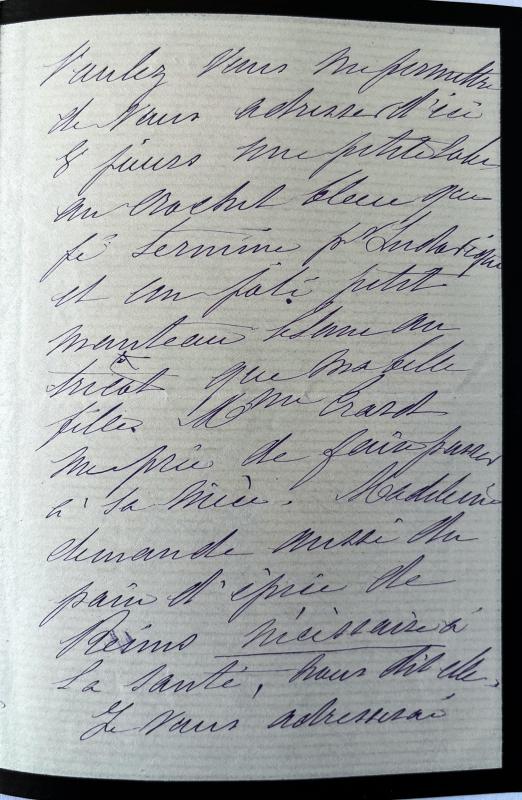 Voulez Vous me permettre
de Vous adresser d'ici
8 jours une petite robe
au crochet bleue que
je termine pr Ludovique
et un joli petit
manteau blanc au
tricot que ma belle
fille Mme
me prie de faire passer
à sa nièce. Madeleine
demande aussi du
pain d'épice de
Reims nécessaire à
sa santé, nous dit elle,
Je vous adresserai